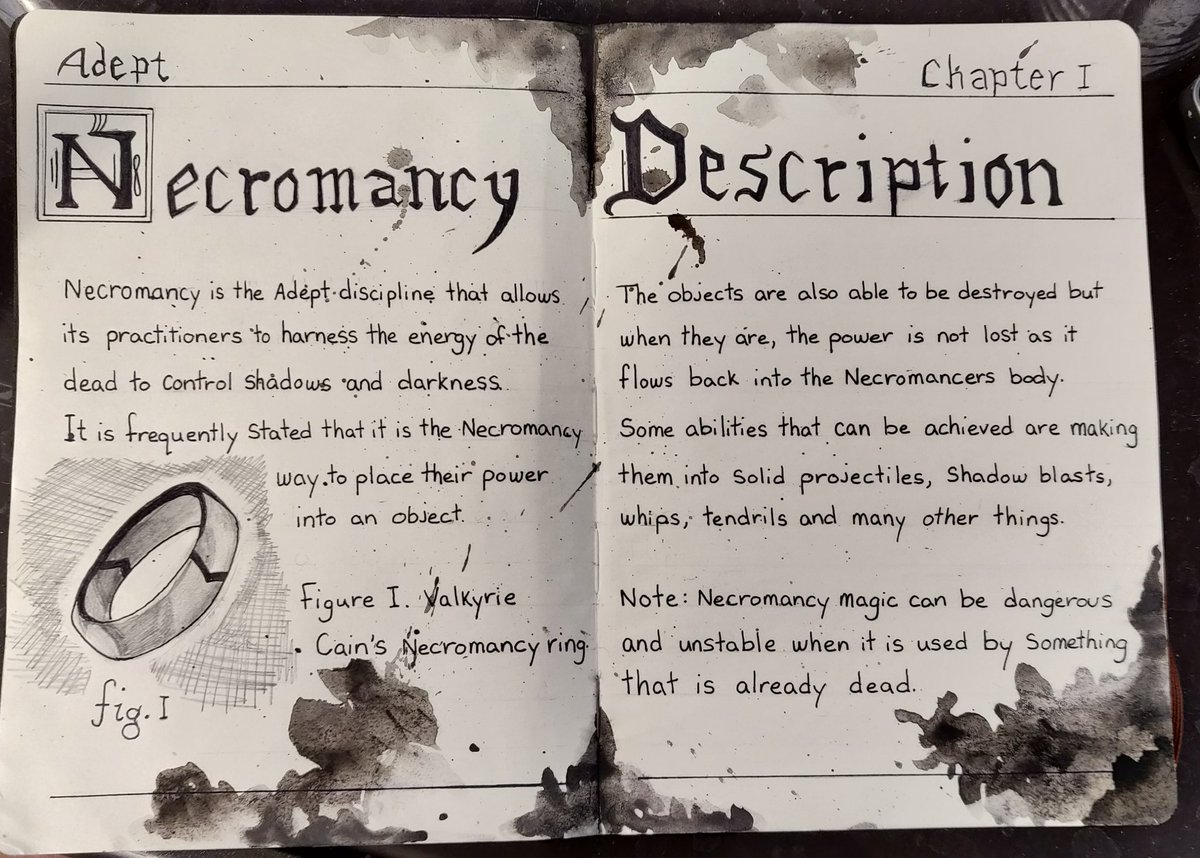 Adept
Necromancy
Necromancy is the Adept discipline that allows
its practitioners to harness the energy of the
dead to control shadows and darkness.
It is frequently stated that it is the Necromancy
way to place their power
into an object.
Figure I. Valkyrie
Cain's Necromancy ring.
fig. I
Chapter I
Description
The objects are also able to be destroyed but
when they are, the power is not lost as it
flows back into the Necromancers body.
Some abilities that can be achieved are making
them into solid projectiles, Shadow blasts,
whips, tendrils and many other things.
Note: Necromancy magic can be dangerous
and unstable when it is used by something
that is already dead.